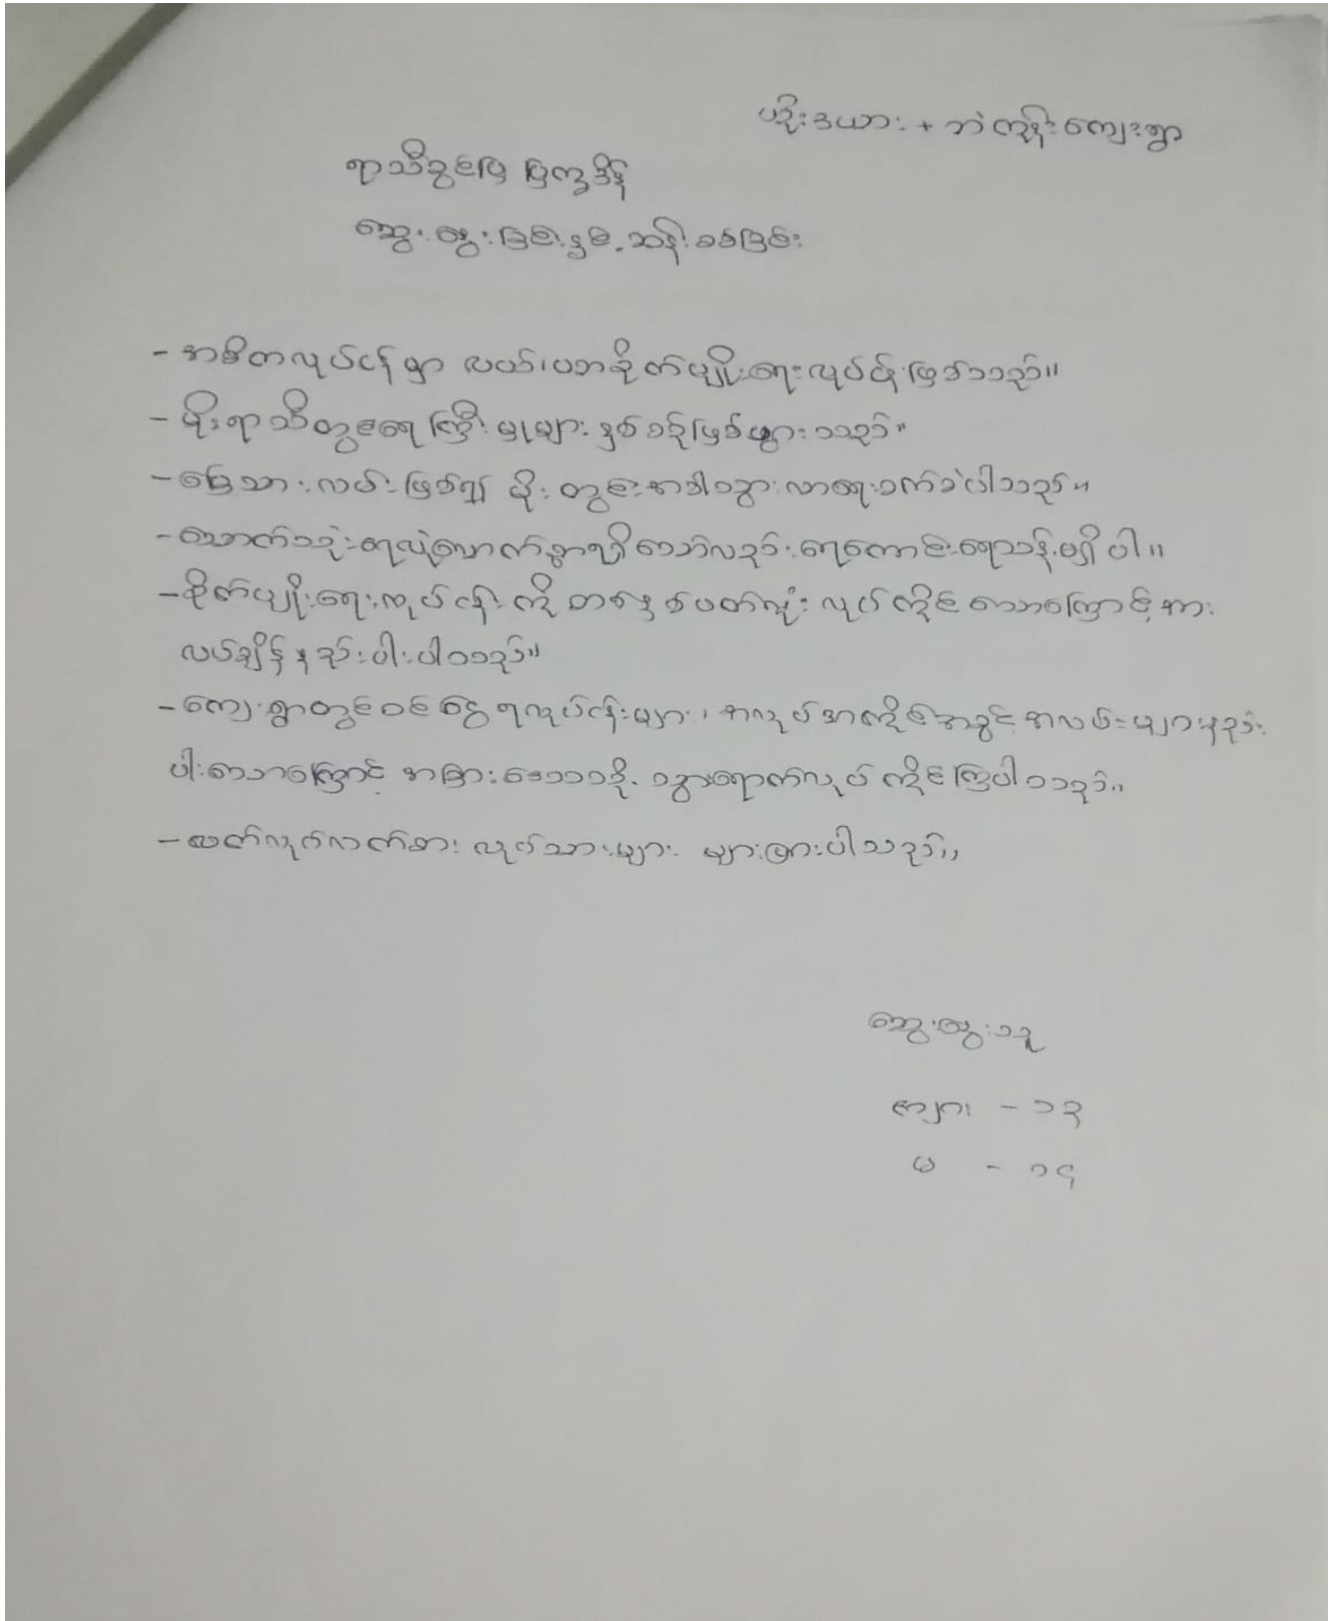 ယိုးဒယား + ဘဲကုန်းကျေးရွာ
ရာသီခွင်ပြ ပြက္ခဒိန်
ဆွေးနွေးခြင်းနှင့် ဆန်းစစ်ခြင်း
- အဓိကလုပ်ငန်မှာ လယ်၊ယာစိုက်ပျိုးရေးလုပ်ငန်းဖြစ်သည်။
- မိုးရာသီတွင်ရေကြီးမှုများ နှစ်စဉ်ဖြစ်ပွားသည်။
- မြေသားလမ်းဖြစ်၍ မိုးတွင်းအခါသွားလာရေးခက်ခဲပါသည်။
- သောက်သုံးရေလုံလောက်စွာရရှိသော်လည်း ရေကောင်းရေသန့်မရှိပါ။
- စိုက်ပျိုးရေးလုပ်ငန်းကို တစ်နှစ်ပတ်လုံး လုပ်ကိုင်သောကြောင့် အား
လပ်ချိန်နည်းပါးပါသည်။
- ကျေးရွာတွင်ဝင်ငွေရလုပ်ငန်းများ၊ အလုပ်အကိုင်အခွင့်အလမ်းများနည်း
ပါးသောကြောင့် အခြားဒေသသို့ သွားရောက်လုပ်ကိုင်ကြပါသည်။
- လက်လုပ်လက်စား လုပ်သားများ များပြားပါသည်။
ဆွေးနွေးသူ
ကျား - ၁၃
မ - ၁၄